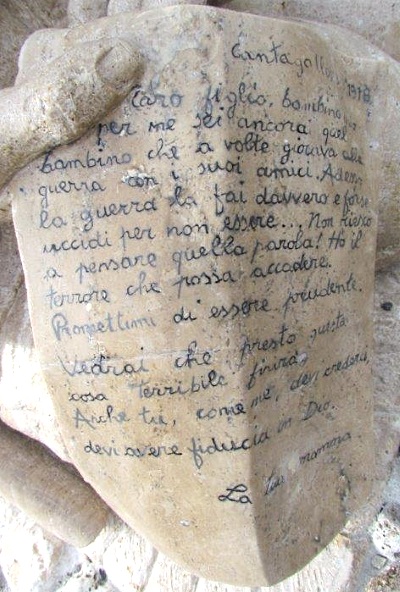 Cantagallo, 1943
Caro figlio, bambino mio
per me sei ancora quel
bambino che a volte giocava alla
guerra con i suoi amici. Adesso
la guerra la fai davvero e forse
uccidi per non essere... Non riesco
a pensare quella parola! Ho il
terrore che possa accadere.
Promettimi di essere prudente.
Vedrai che presto questa
cosa terribile finirà.
Anche tu, come me, devi crederci,
devi avere fiducia in Dio.
La tua mamma